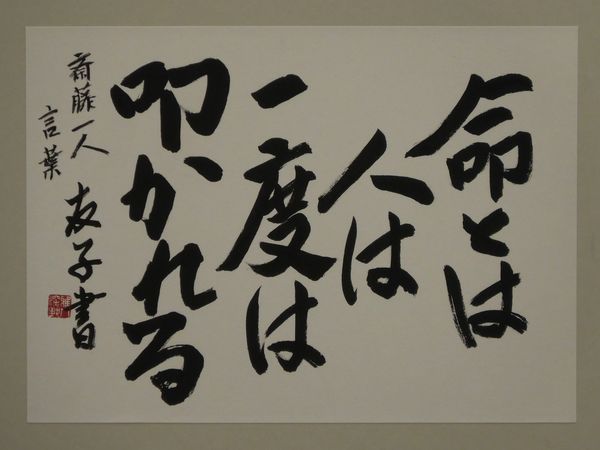 命とは
人は
一度は
叩かれる
斎藤一人
言葉
友子書